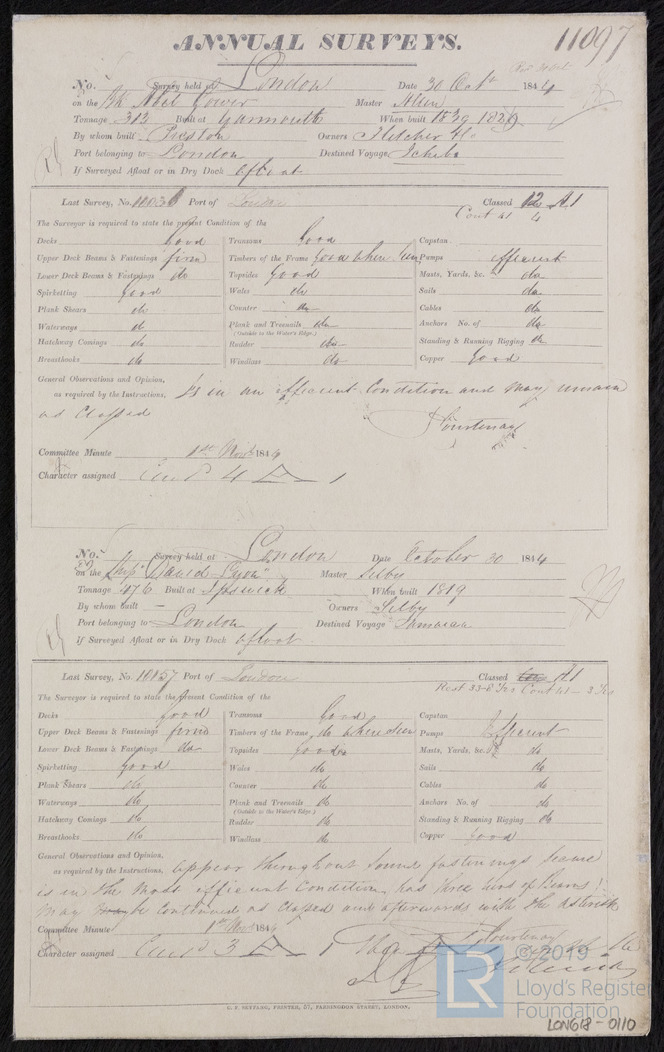 ANNUAL SURVEYS.
11097
No. Survey held at London Date 30 Octr 1844
on the Bk Abel Gower Master
Tonnage 312 Built at Yarmouth When built 1829
By whom built Preston Owners Fletcher &c
Port belonging to London Destined Voyage Ichebo
If Surveyed Afloat or in Dry Dock Afloat
Last Survey, No. Port of London Classed 12 A1
Cont 41 4
The Surveyor is required to state the present Condition of the
Decks Good Transoms Good Capstan
Upper Deck Beams & Fastenings firm Timbers of the Frame Good where seen Pumps efficient
Lower Deck Beams & Fastenings do Topsides Good Masts, Yards, &c. do
Spirketting Good Wales do Sails do
Plank Shears do Counter do Cables do
Waterways do Plank and Treenails do Anchors No. of do
(Outside to the Water's Edge.)
Hatchway Comings do Rudder do Standing & Running Rigging do
Breasthooks do Windlass do Copper Good
General Observations and Opinion,
as required by the Instructions, Is in an efficient Condition and may remain
as Classed
Courtenay
Committee Minute 1st Novr 1844
Character assigned Contd 4 A 1
No. Survey held at London Date October 30 1844
on the Ship "David Lyon" Master Selby
Tonnage 476 Built at Ipswich When built 1819
By whom built – Owners Selby
Port belonging to London Destined Voyage Jamaica
if Surveyed Afloat or in Dry Dock Afloat
Last Survey, No. 10157 Port of London Classed A1
Rest 33-8 Yrs Cont 41 - 3 Yrs
The Surveyor is required to state the present Condition of the
Decks Good Transoms Good Capstan
Upper Deck Beams & Fastenings firm Timbers of the Frame do where seen Pumps Efficient
Lower Deck Beams & Fastenings do Topsides Good Masts, Yards, &c. do
Spirketting Good Wales do Sails do
Plank Shears do Counter do Cables do
Waterways do Plank and Treenails do Anchors No. of do
(Outside to the Water's Edge.)
Hatchway Comings do Rudder do Standing & Running Rigging do
Breasthooks do Windlass do Copper Good
General Observations and Opinion,
as required by the Instructions, Appear throughout sound fastenings secure
is in the most efficient Condition, has three tiers of Beams!
May be Continued as Classed and afterwards with the asterisk
Committee Minute 1st Novr 1844 Courtenay
Character assigned Contd 3 A 1
L. F. SEYFANG, PRINTER, 57, FARRINGDON STREET, LONDON.
LR
© 2019
Lloyd's Register
Foundation
LON618-0110